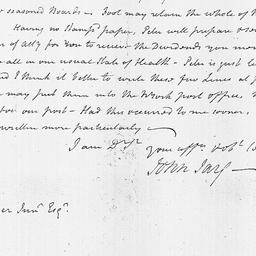 seasoned Boards - Fool may return the whole of
Having no Stampt paper, Peter will prepare &
of atty for you to receive the Dividends you
all in our usual State of Health - Peter is just
I think it better to write these few Lines at
may put them into the NYork post office.
for our post - Had this occurred to me sooner,
written more particularly -
I am Dr Sr
your affte. & obt.
John Jay -
Junr Esqr.